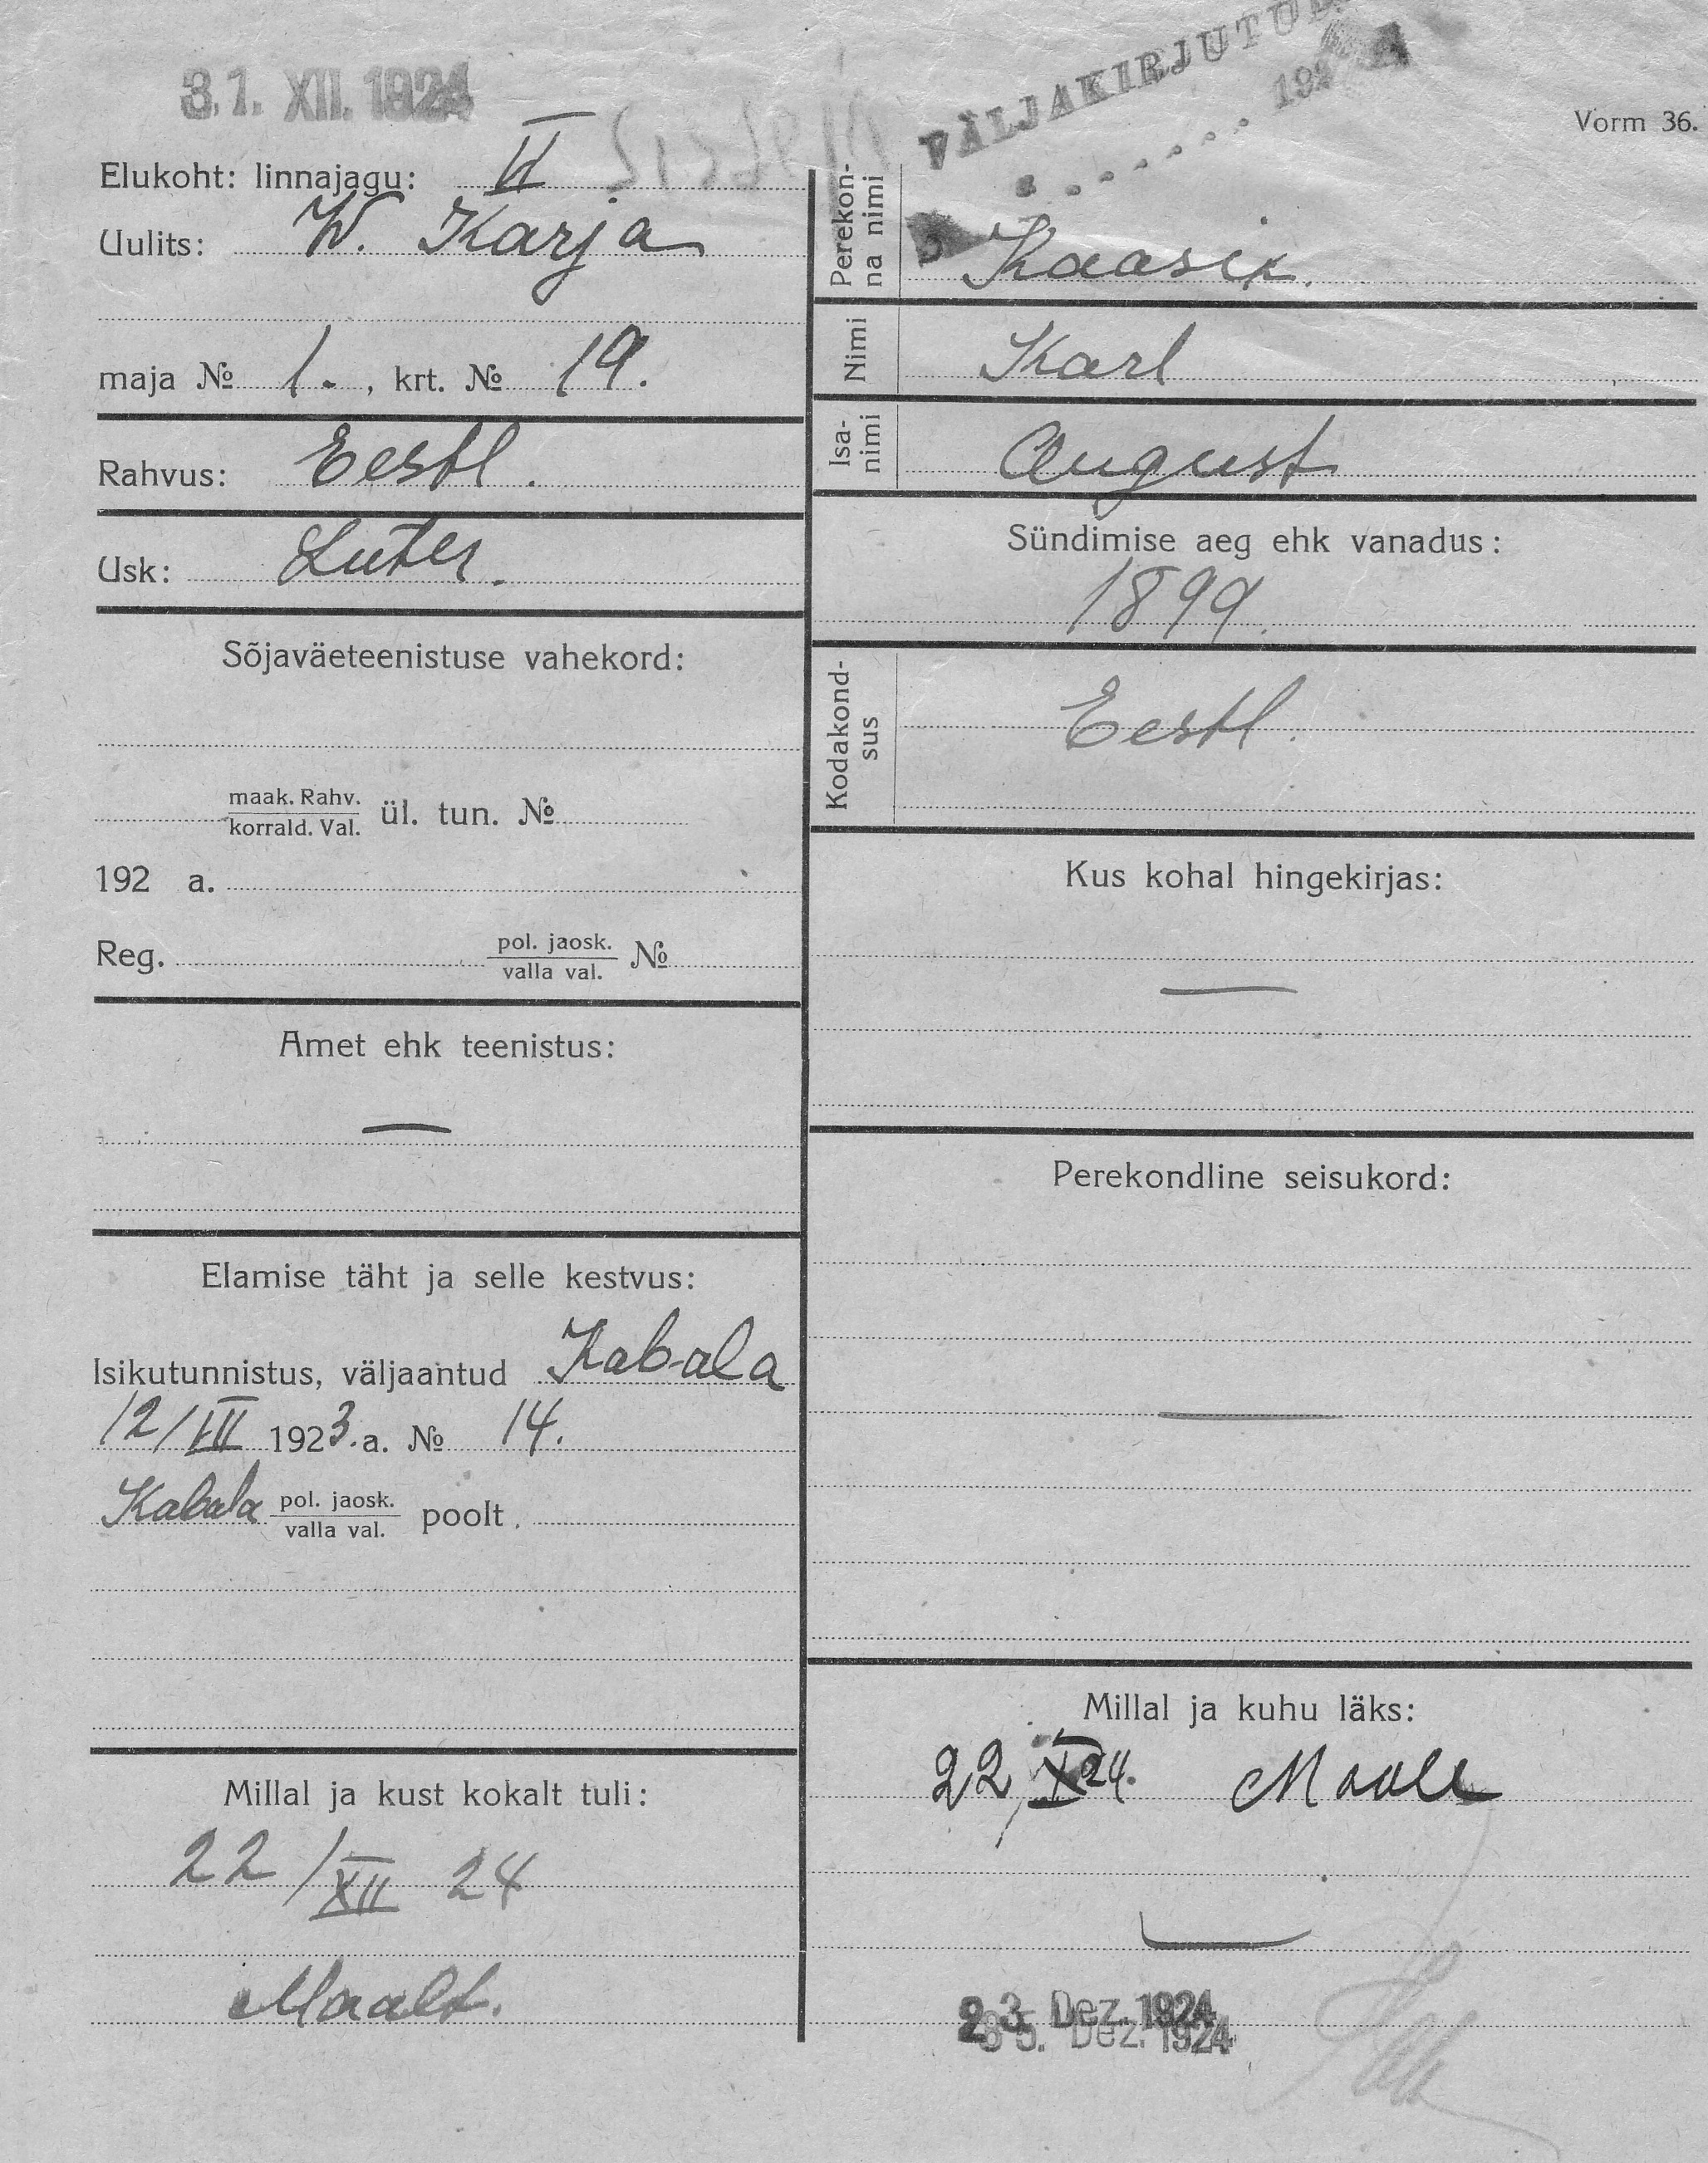 31. XII. 1924
VÄLJAKIRJUTUD
192
Vorm 36.
Elukoht: linnajagu: VI
Uulits: W. Karja
maja № 1. , krt. № 19.
Rahvus: Eestl.
Usk: Luter.
Sõjaväeteenistuse vahekord:
maak. Rahv.
korrald. Val. ül. tun. №
192 a.
Reg. pol. jaosk.
valla val. №
Amet ehk teenistus:
—
Elamise täht ja selle kestvus:
Isikutunnistus, väljaantud Kabala
12/VII 1923. a. № 14.
Kabala pol. jaosk.
valla val. poolt.
Millal ja kust kokalt tuli:
22/XII 24
Maalt.
Perekon-
na nimi Kaasik.
Nimi Karl
Isa-
nimi August
Sündimise aeg ehk vanadus:
1899.
Kodakond-
sus Eestl.
Kus kohal hingekirjas:
—
Perekondline seisukord:
—
Millal ja kuhu läks:
22, 24. Maale
23. Dez. 1924
Dez. 1924